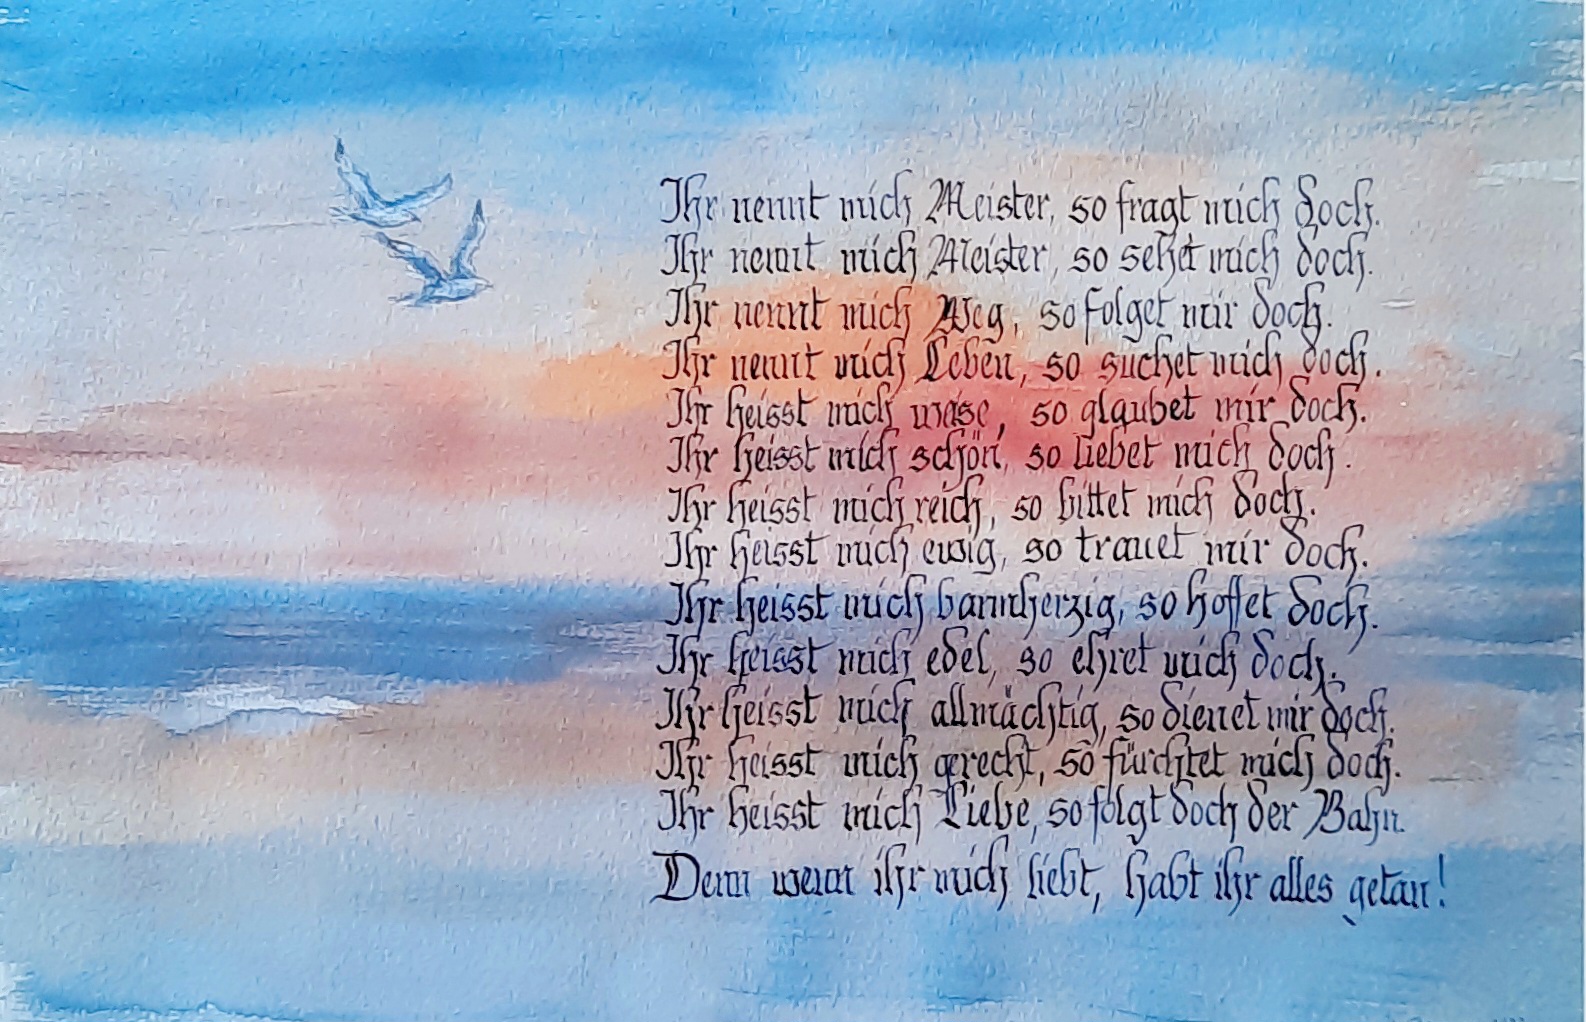 Ihr nennt mich Meister, so fragt mich doch.
Ihr nennt mich Meister, so sehet mich doch.
Ihr nennt mich Weg, so folget mir doch.
Ihr nennt mich Leben, so suchet mich doch.
Ihr heisst mich weise, so glaubet mir doch.
Ihr heisst mich schön, so liebet mich doch.
Ihr heisst mich reich, so bittet mich doch.
Ihr heisst mich ewig, so trauet mir doch.
Ihr heisst mich barmherzig, so hoffet doch.
Ihr heisst mich edel, so ehret mich doch.
Ihr heisst mich allmächtig, so dienet mir doch.
Ihr heisst mich gerecht, so fürchtet mich doch.
Ihr heisst mich Liebe, so folgt doch der Bahn.
Denn wenn ihr mich liebt, habt ihr alles getan!